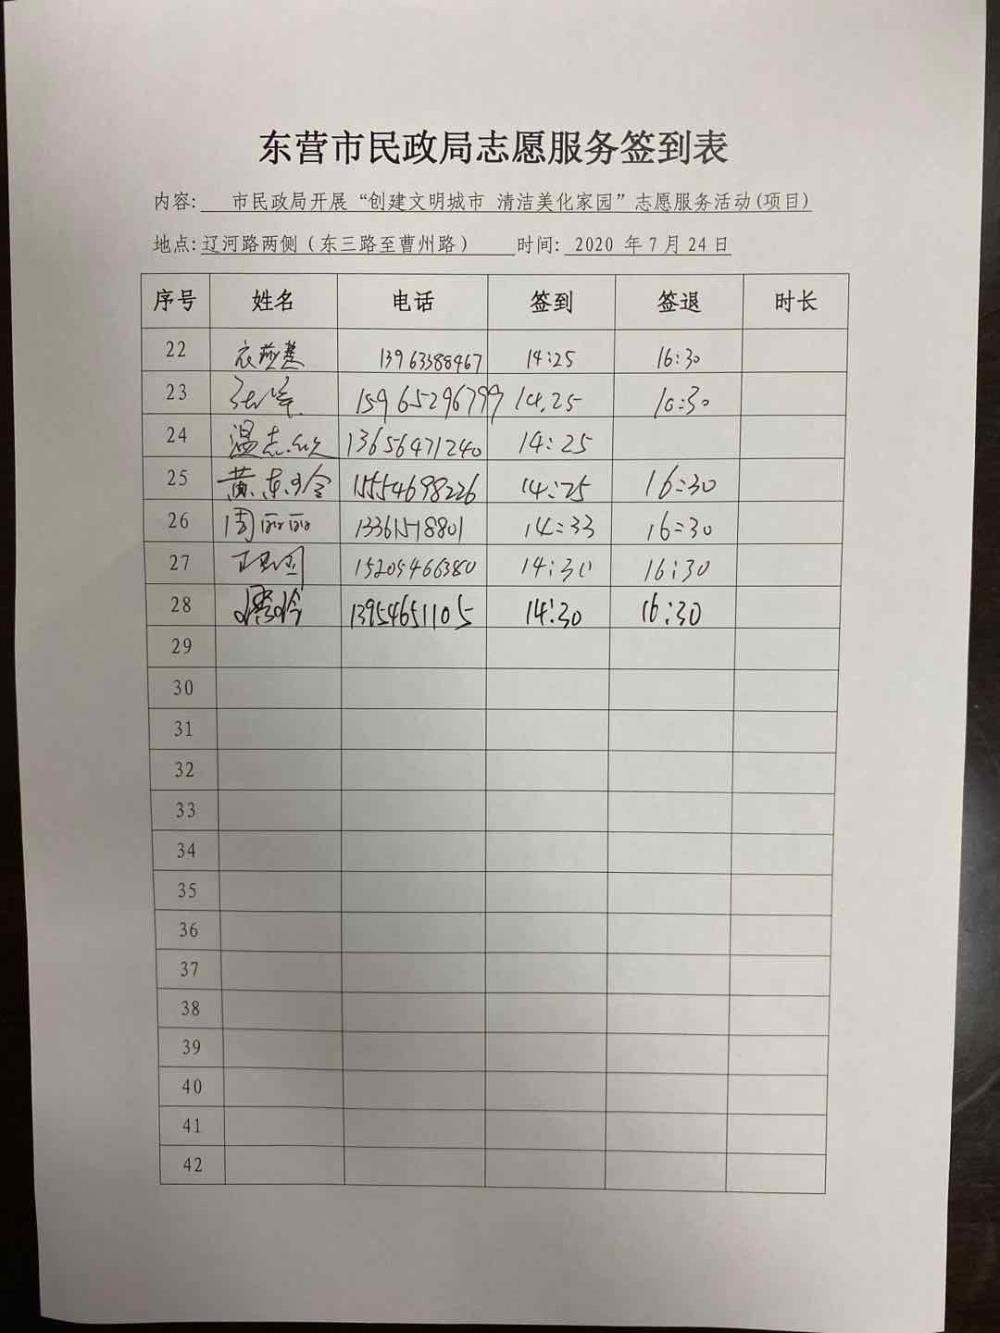 东营市民政局志愿服务签到表
内容: 市民政局开展“创建文明城市 清洁美化家园”志愿服务活动(项目)
地点:辽河路两侧（东三路至曹州路） 时间: 2020 年7月24日
序号 姓名 电话 签到 签退 时长
22 衣燕慧 13963388467 14:25 16:30
23 15965296799 14.25 16:30
24 温志欣 13656471240 14:25
25 黄东玲 15554698226 14:25 16:30
26 周丽丽 13361518801 14:33 16:30
27 15205466380 14:30 16:30
28 13954651105 14:30 16:30
29
30
31
32
33
34
35
36
37
38
39
40
41
42